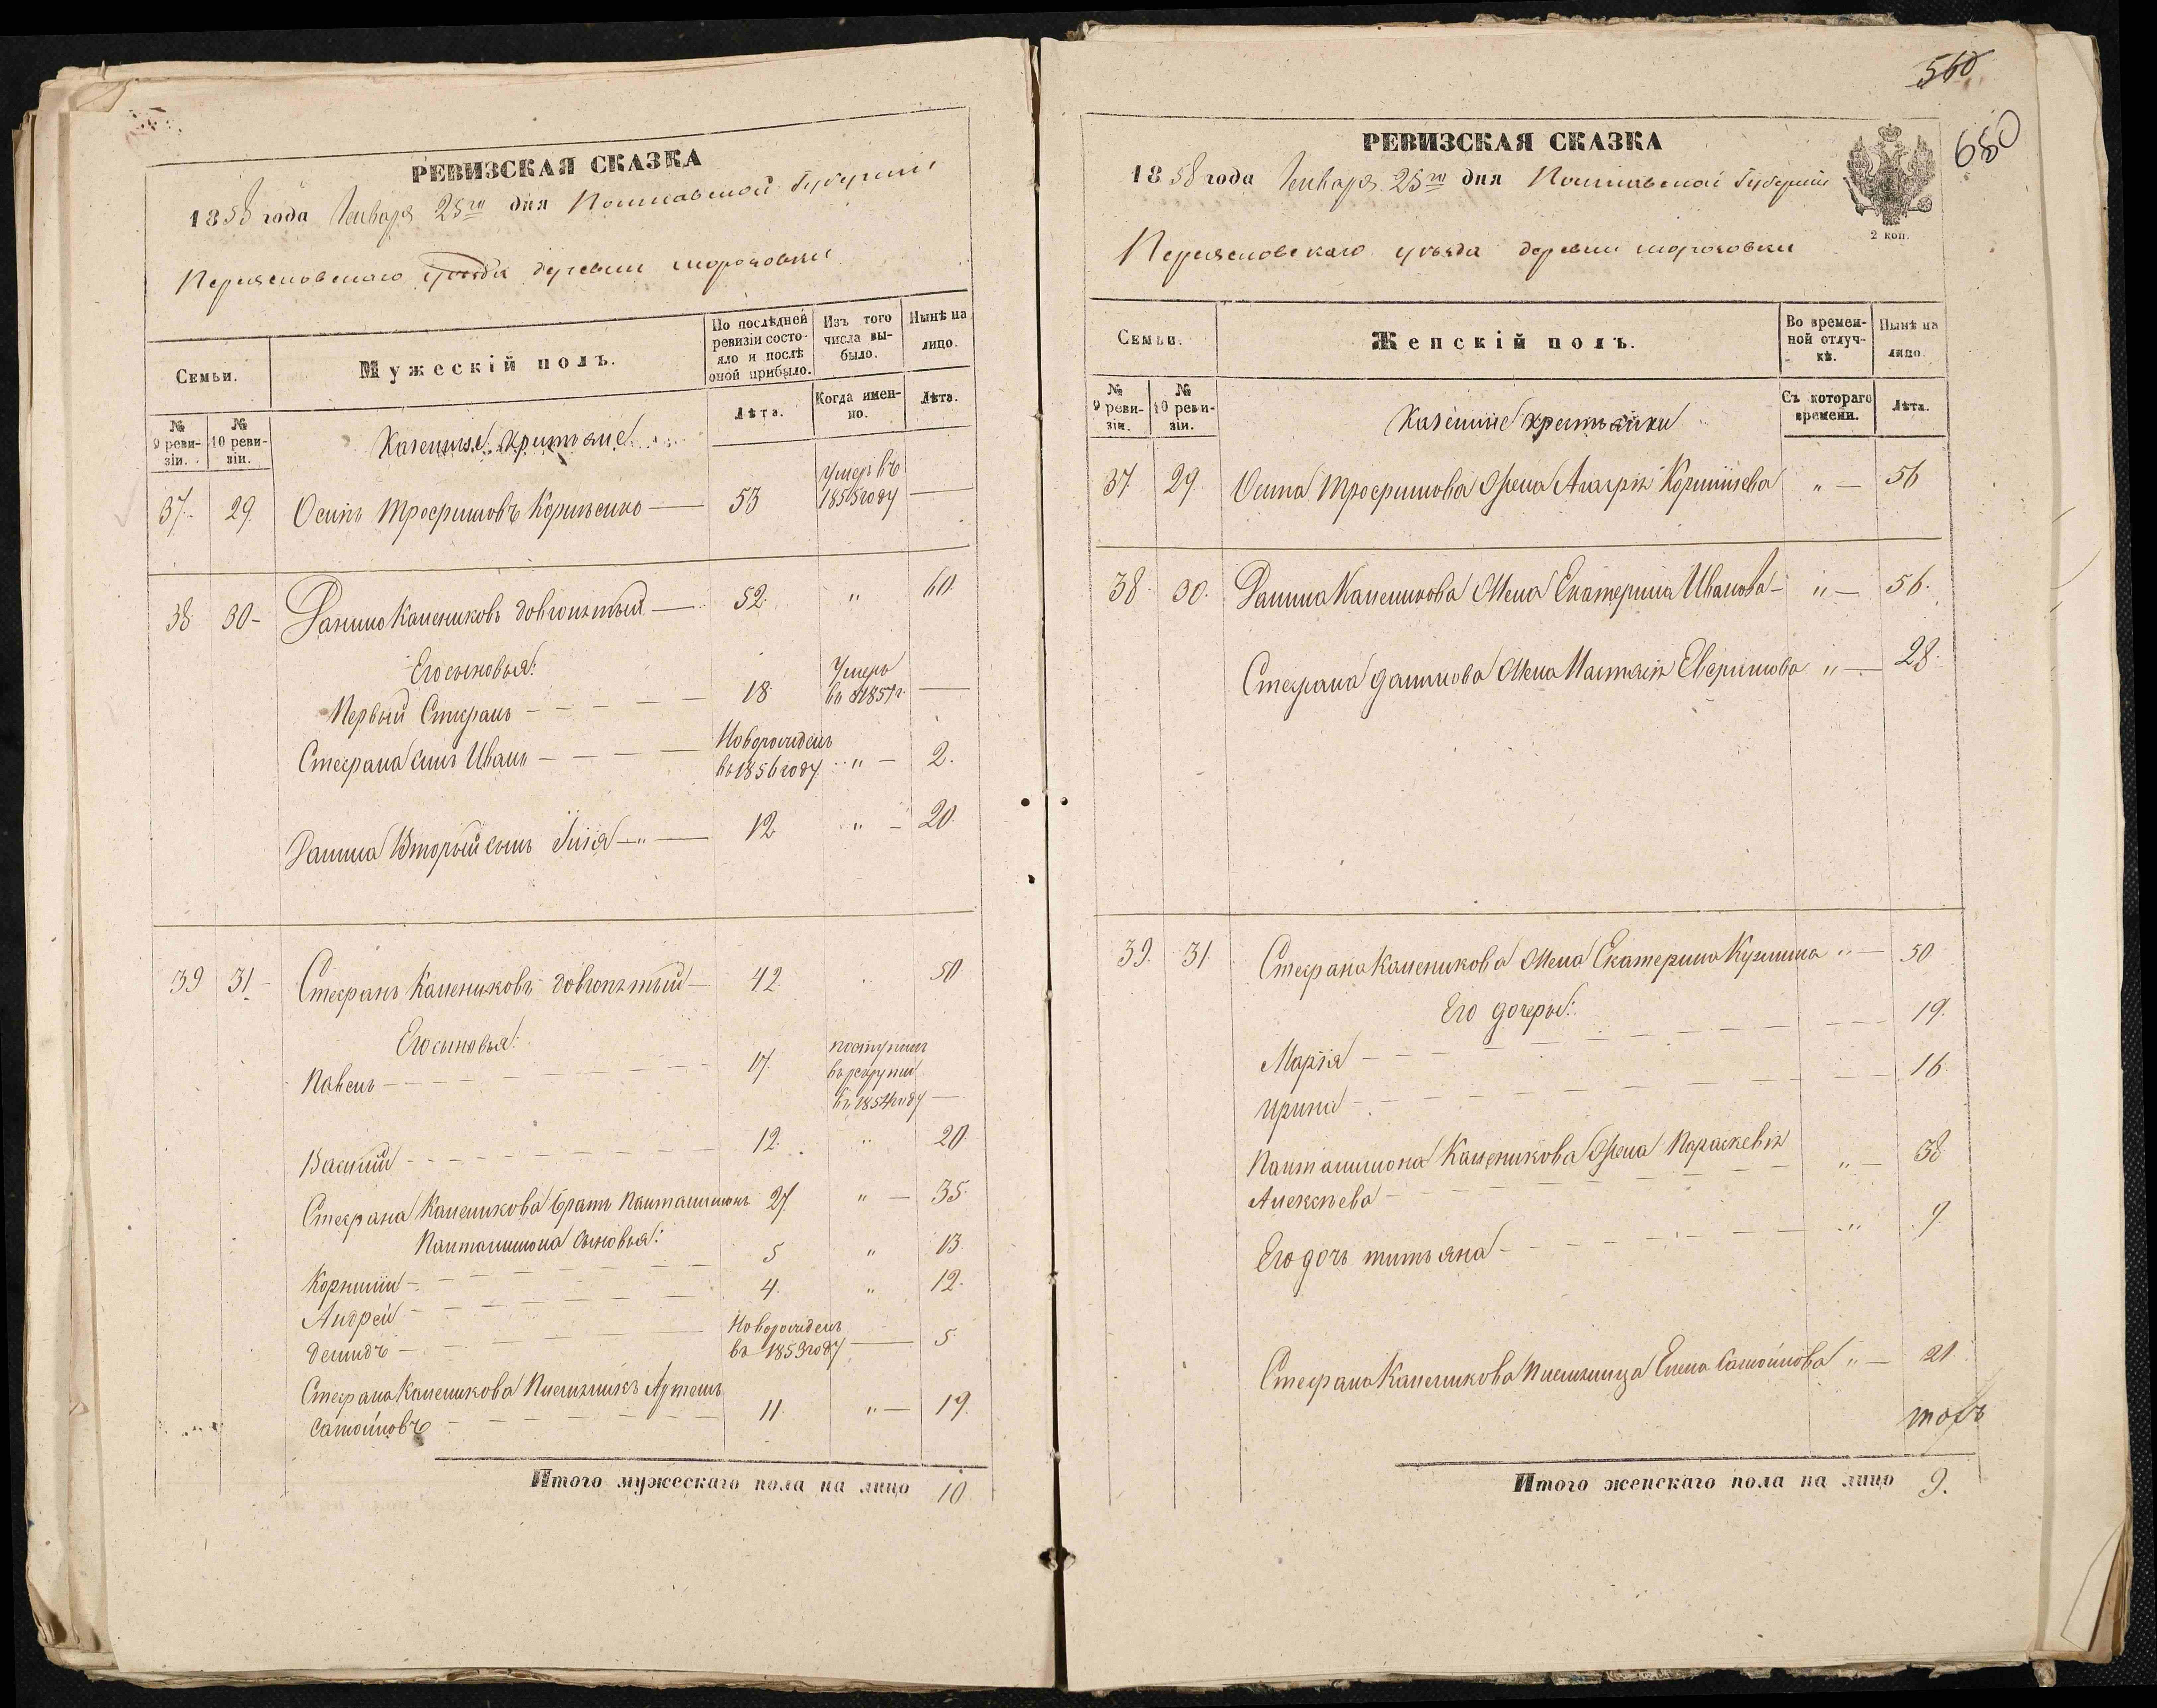 РЕВИЗСКАЯ СКАЗКА
1858 года Января 25го дня Полтавской Губернии
Переясловскаго уѣзда деревни
Семьи.
Мужескій полъ.
По послѣдней ревизіи состояло и послѣ оной прибыло.
Изъ того числа выбыло.
Нынѣ на лицо.
№ 9 ревизіи.
№ 10 ревизіи.
Казенные крестяне
Лѣта.
Когда именно.
Лѣта.
37. 29. Осипъ Трофимовъ Корніенко — 53 Умеръ въ 1855 году —
38 30 - Данило Калениковъ Довгопятый — 52. " 60.
Его сыновья:
Первый Стефанъ - - - - 18. Умеръ въ 1857 г. —
Стефана сынъ Иванъ - - - - Новорожденъ въ 1856 году " - 2.
Данила Вторый сынъ Илія - " - 12 " - 20.
39 31 - Стефанъ Калениковъ Довгопятый - 42. " 50
Его сыновья:
Павелъ - - - - 17. поступилъ въ рекруты въ 1854 году —
Василій - - - - 12. " 20.
Стефана Каленикова братъ Панталимонъ 27. " - 35.
Панталимона сыновья:
Корнилій - - - - 5 " 13.
Андрей - - - - 4. " 12.
Демидъ - - - - Новорожденъ въ 1853 году — 5.
Стефана Каленикова Племянникъ Артемъ
Самойловъ - - - - 11. " - 19.
Итого мужескаго пола на лицо 10
560
680
РЕВИЗСКАЯ СКАЗКА
1858 года Января 25го дня Полтавской Губернии
2 коп.
Переясловскаго уѣзда деревни
Семьи.
Женскій полъ.
Во временной отлучкѣ.
Нынѣ на лицо.
№ 9 ревизіи.
№ 10 ревизіи.
Казенніе крестьянки
Съ котораго времени.
Лѣта.
37 29 Осипа Трофимова Жена Агафія Корнііева " - 56
38. 30. Данила Каленикова Жена Екатерина Иванова - " - 56.
Стефана Данилова Жена Настасія Евфимова " - 28.
39. 31. Стефана Каленикова Жена Екатерина Кузмина " - 50
Его дочеры:
Марія - - - - 19.
Ирина - - - - 16.
Панталимона Каленикова Жена Параскевія
Алексѣева - - - - " - 38
Его дочъ Татьяна - - - - " 9.
Стефана Каленикова Племянница Елена Самойлова " - 21.
Итого женскаго пола на лицо 9.